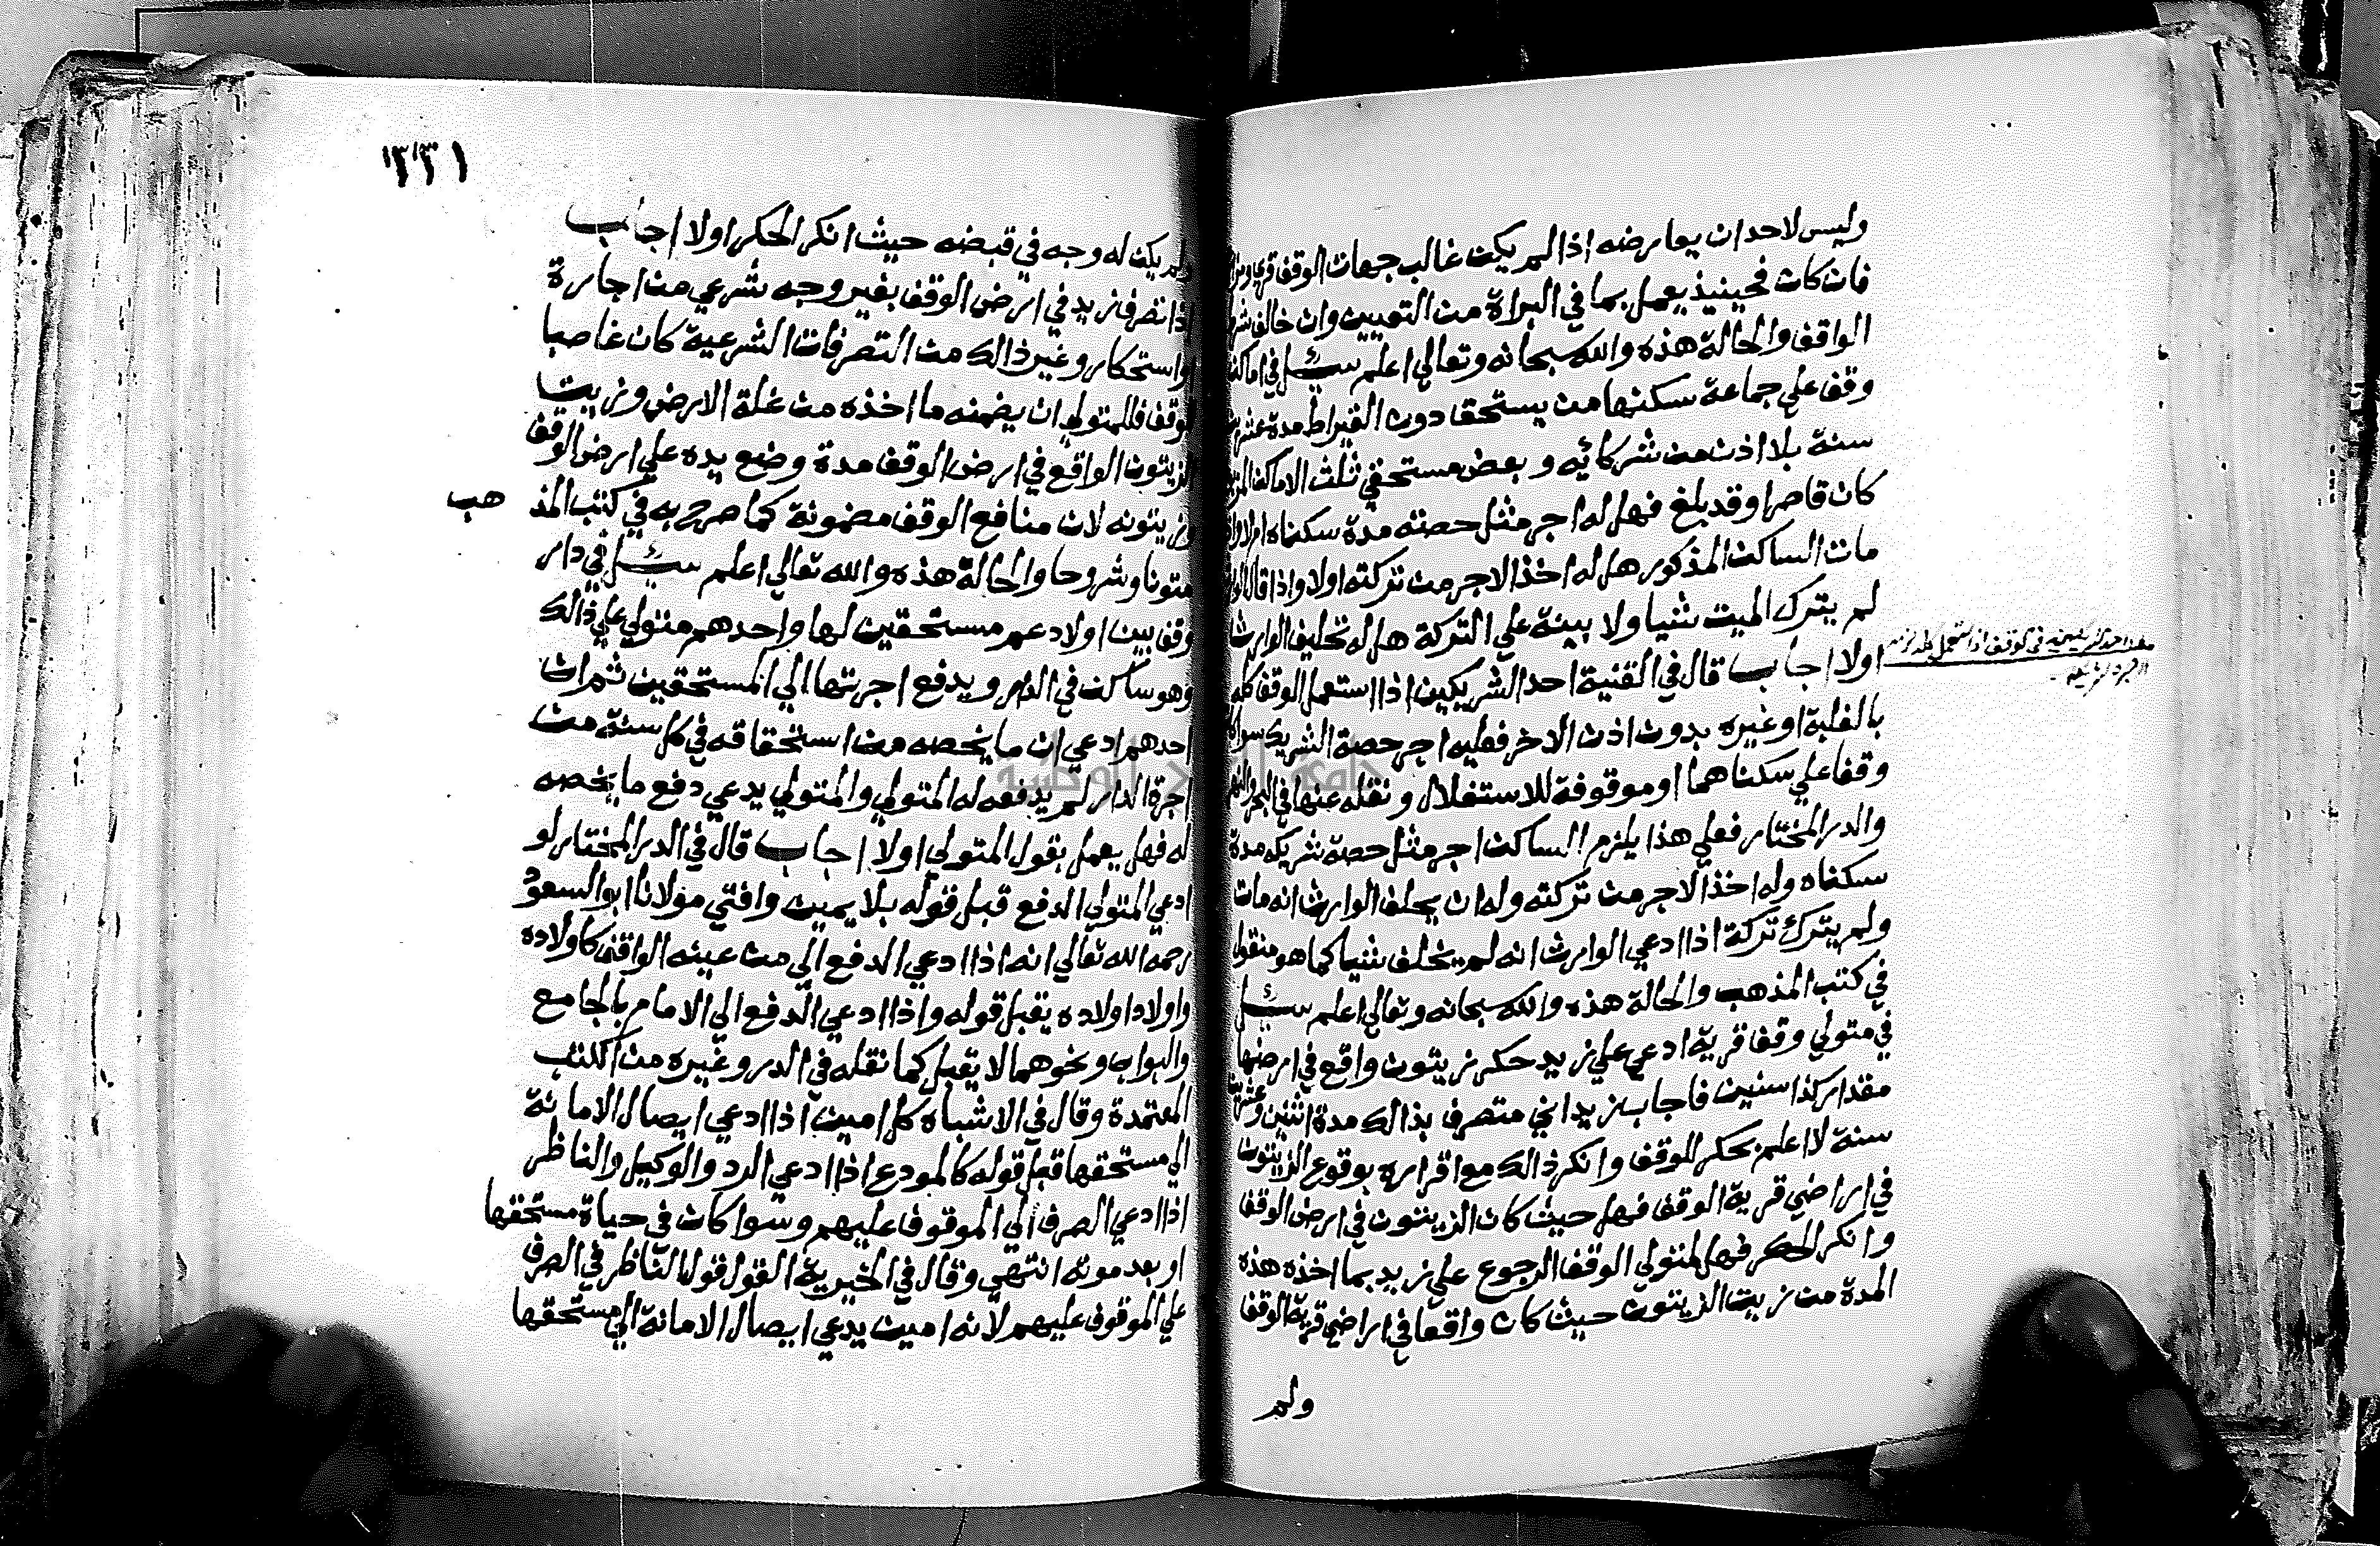 وليس لاحد ان يعارضه اذا لم يكن غالب جهات الوقف قري ومزارع
فان كان فحينيذ يعمل بما في البراة من التعيين وان خالف شرط
الواقف والحالة هذه والله سبحانه وتعالي اعلم سئل في اماكن
وقف علي جماعة سكنها من يستحق دون القيراط مدة عشرين
سنة بلا اذن من شركائه وبعض مستحقي ثلث الاماكن
كان قاصرا وقد بلغ فهل له اجر مثل حصته مدة سكناه ام لا واذا
مات الساكن المذكور هل له اخذ الاجر من تركته اولا واذا قال الوارث
لم يترك الميت شيا ولا بينة علي التركة هل له تحليف الوارث
اولا اجاب قال في القنية احد الشريكين اذا استعمل الوقف كله
بالغلبة او غيره بدون اذن الاخر فعليه اجر حصة الشريك سوا كان
وقفا علي سكناهما او موقوفة للاستغلال ونقله عنها في البحر والنهر
والدر المختار فعلي هذا يلزم الساكن اجر مثل حصة شريكه مدة
سكناه وله اخذ الاجر من تركته وله ان يحلف الوارث انه مات
ولم يترك تركة اذا ادعي الوارث انه لم يخلف شيا كما هو منقول
في كتب المذهب والحالة هذه والله سبحانه وتعالي اعلم سئل
في متولي وقف قرية ادعي علي زيد حكر زيتون واقع في ارضها
مقدار كذا سنين فاجاب زيد اني متصرف بذالك مدة اثنين وعشرين
سنة لا اعلم بحكر للوقف وانكر ذالك مع اقراره بوقوع الزيتون
في اراضي قرية الوقف فهل حيث كان الزيتون في ارض الوقف
وانكر الحكر فهل لمتولي الوقف الرجوع علي زيد بما اخذه هذه
المدة من زيت الزيتون حيث كان واقعا في اراضي قرية الوقف
ولم
ولم يكن له وجه في قبضه حيث انكر الحكر اولا اجاب
اذا تصرف زيد في ارض الوقف بغير وجه شرعي من اجارة
او استحكار وغير ذالك من التصرفات الشرعية كان غاصبا
للوقف فللمتولي ان يضمنه ما اخذه من غلة الارض وزيت
الزيتون الواقع في ارض الوقف مدة وضع يده علي ارض الوقف
وزيتونه لان منافع الوقف مضمونة كما صرح به في كتب المذهب
متونا وشروحا والحالة هذه والله تعالي اعلم سئل في دار
وقف بين اولاد عم مستحقين لها واحدهم متولي علي ذالك
وهو ساكن في الدار ويدفع اجرتها الي المستحقين ثم ان
احدهم ادعي ان ما يخصه من استحقاقه في كل سنة من
اجرة الدار لم يدفعه له المتولي والمتولي يدعي دفع ما يخصه
له فهل يعمل بقول المتولي اولا اجاب قال في الدر المختار لو
ادعي المتولي الدفع قبل قوله بلا يمين وافتي مولانا ابو السعود
رحمه الله تعالي انه اذا ادعي الدفع الي من عينه الواقف كاولاده
واولاد اولاده يقبل قوله واذا ادعي الدفع الي الامام بالجامع
والبواب ونحوهما لا يقبل كما نقله في الدر وغيره من الكتب
المعتمدة وقال في الاشباه كل امين اذا ادعي ايصال الامانة
الي مستحقها قبل قوله كالمودع اذا ادعي الرد والوكيل والناظر
اذا ادعي الصرف الي الموقوف عليهم وسوا كان في حياة مستحقها
او بعد موته انتهي وقال في الخيرية القول قول الناظر في الصرف
علي الموقوف عليهم لانه امين يدعي ايصال الامانة الي مستحقها